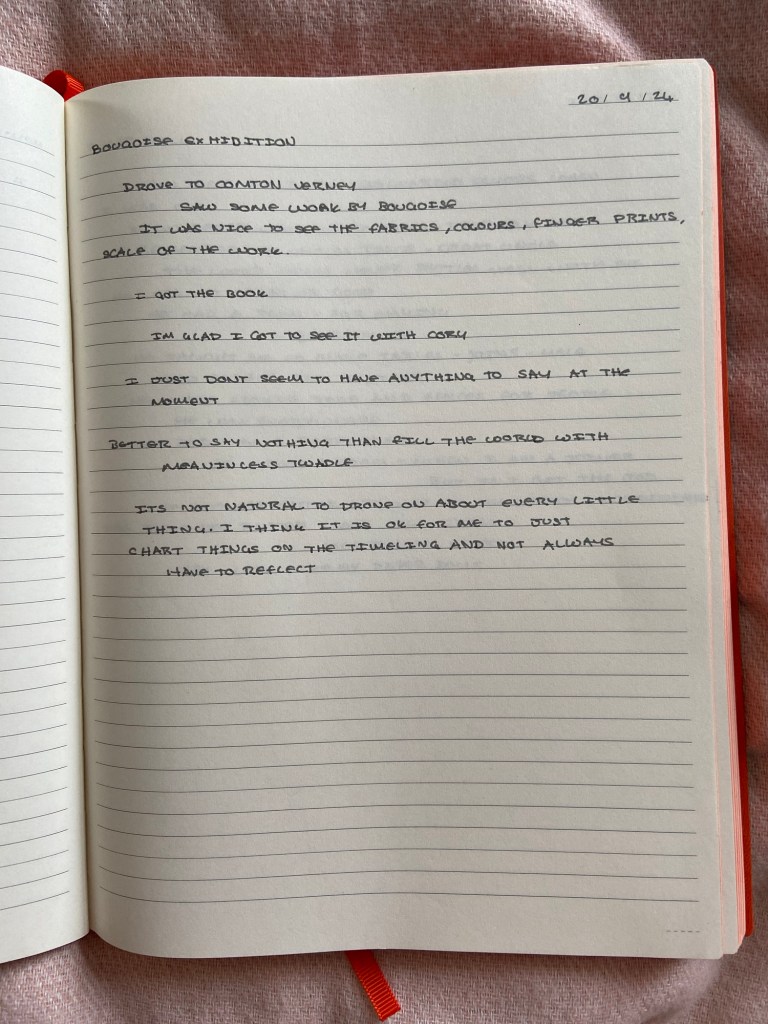 20/9/24
BOUQOISE EXHIDITION
DROVE TO COMTON VERNEY
SAW SOME WORK BY BOUQOISE
IT WAS NICE TO SEE THE FABRICS, COLOURS, FINGER PRINTS,
SCALE OF THE WORK.
I GOT THE BOOK
IM GLAD I GOT TO SEE IT WITH CORY
I JUST DONT SEEM TO HAVE ANYTHING TO SAY AT THE
MOMENT
BETTER TO SAY NOTHING THAN FILL THE WORLD WITH
MEANINGLESS TWADLE
ITS NOT NATURAL TO DRONE ON ABOUT EVERY LITTLE
THING. I THINK IT IS OK FOR ME TO JUST
CHART THINGS ON THE TIMELING AND NOT ALWAYS
HAVE TO REFLECT